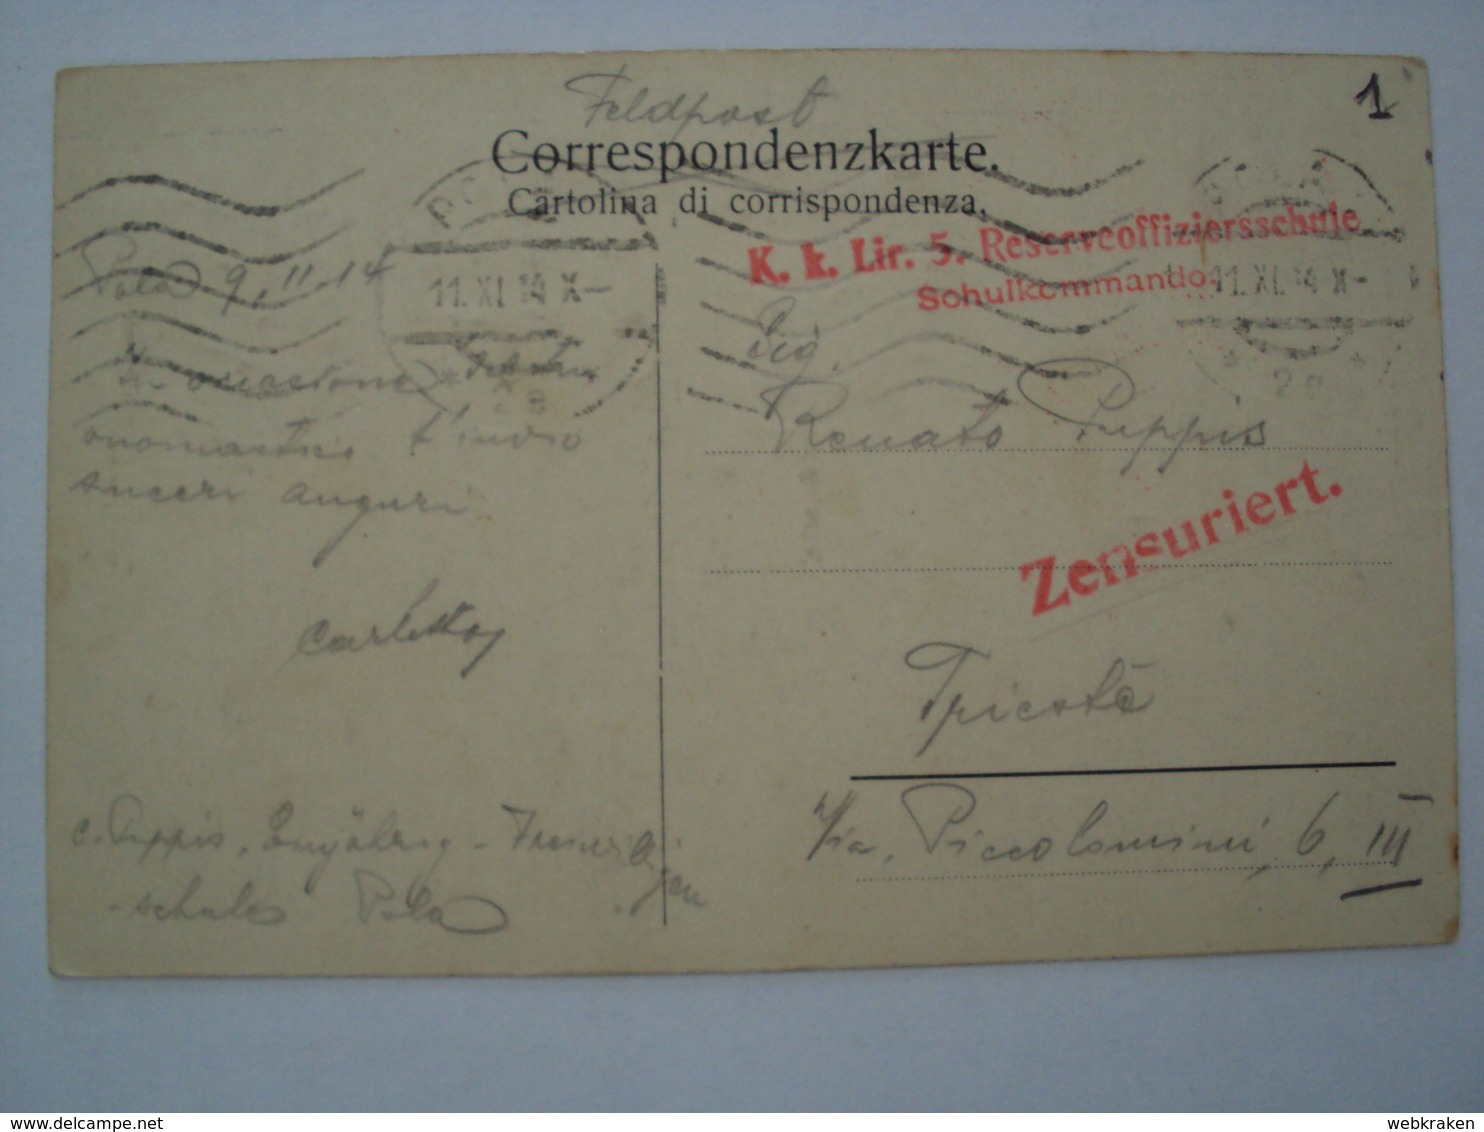 1
Feldpost
Correspondenzkarte.
Cartolina di corrispondenza.
K. k. Lir. 5. Reserveoffiziersschule
Schulkommando
11.XI.14 X-
11.XI.14 X-
2a
2a
Pola 9, 11 14
In occasione
onomastico t'invio
sinceri auguri
Carletto
C. Puppis, Einjährig-Freiwilligen
-schule Pola
Sig.
Renato Puppis
Zensuriert.
Trieste
Via, Piccolomini, 6, III
delcampe.net
webkraken